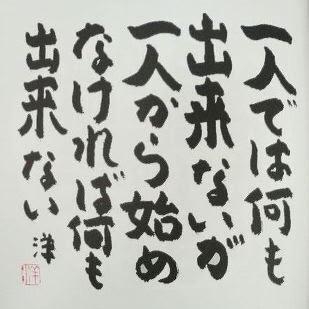 一人では何も
出来ないが
一人から始め
なければ何も
出来ない
洋
洋